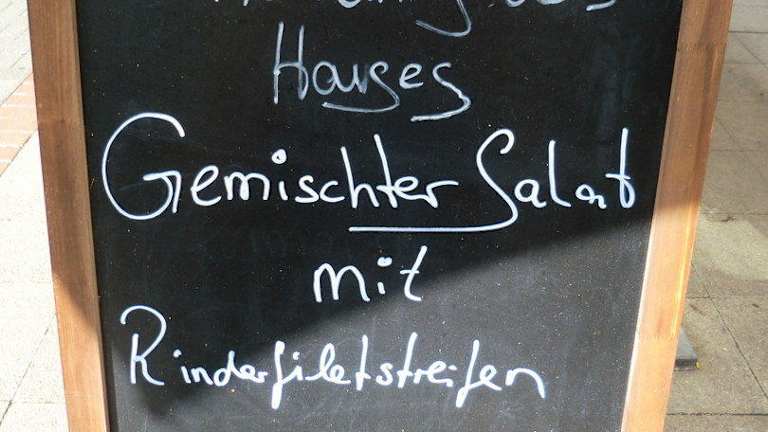 Hauses
Gemischter Salat
mit
Rinderfiletstreifen